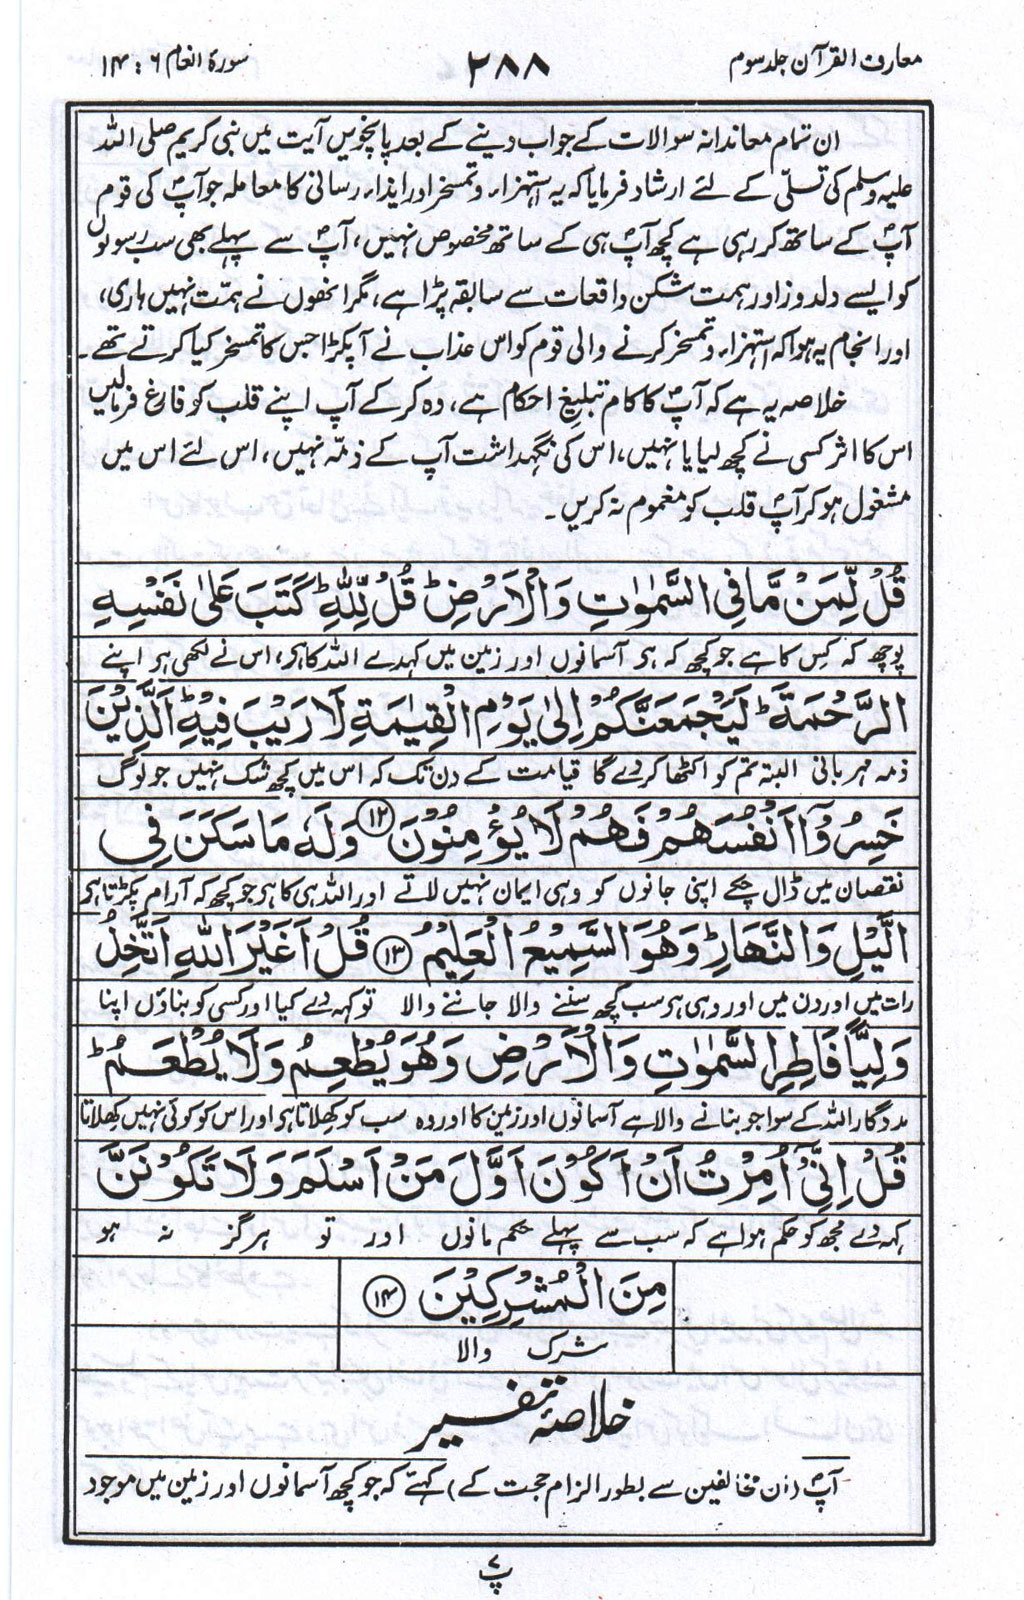 معارف القرآن جلد سوم
۲۸۸
سورۂ انعام ۶ : ۱۴
ان تمام معاندانہ سوالات کے جواب دینے کے بعد پانچویں آیت میں نبی کریم صلی اللہ
علیہ وسلم کی تسلّی کے لئے ارشاد فرمایا کہ یہ استہزاء و تمسخر اور ایذاء رسانی کا معاملہ جو آپؐ کی قوم
آپؐ کے ساتھ کر رہی ہے کچھ آپؐ ہی کے ساتھ مخصوص نہیں، آپؐ سے پہلے بھی سب رسولوں
کو ایسے دلدوز اور ہمت شکن واقعات سے سابقہ پڑا ہے، مگر انھوں نے ہمّت نہیں ہاری،
اور انجام یہ ہوا کہ استہزاء و تمسخر کرنے والی قوم کو اس عذاب نے آپکڑا جس کا تمسخر کیا کرتے تھے۔
خلاصہ یہ ہے کہ آپؐ کا کام تبلیغ احکام ہے، وہ کر کے آپ اپنے قلب کو فارغ فرمالیں
اس کا اثر کسی نے کچھ لیا یا نہیں، اس کی نگہداشت آپ کے ذمّہ نہیں، اس لئے اس میں
مشغول ہو کر آپؐ قلب کو مغموم نہ کریں۔
قُلْ لِّمَنْ مَّا فِی السَّمٰوٰتِ وَالْاَرْضِ ؕ قُلْ لِّلّٰہِ ؕ کَتَبَ عَلٰی نَفْسِہِ
پوچھ کہ کِس کا ہے جو کچھ کہ ہے آسمانوں اور زمین میں کہدے اللہ کا ہے، اس نے لکھی ہے اپنے
الرَّحْمَۃَ ؕ لَیَجْمَعَنَّکُمْ اِلٰی یَوْمِ الْقِیٰمَۃِ لَا رَیْبَ فِیْہِ ؕ اَلَّذِیْنَ
ذمہ مہربانی البتہ تم کو اکٹھا کر دے گا قیامت کے دن تک کہ اس میں کچھ شک نہیں جو لوگ
خَسِرُوْٓا اَنْفُسَہُمْ فَہُمْ لَا یُؤْمِنُوْنَ ﴿۱۲﴾ وَلَہٗ مَا سَکَنَ فِی
نقصان میں ڈال چکے اپنی جانوں کو وہی ایمان نہیں لاتے اور اللہ ہی کا ہے جو کچھ کہ آرام پکڑتا ہے
الَّیْلِ وَالنَّہَارِ ؕ وَہُوَ السَّمِیْعُ الْعَلِیْمُ ﴿۱۳﴾ قُلْ اَغَیْرَ اللّٰہِ اَتَّخِذُ
رات میں اور دن میں اور وہی ہے سب کچھ سننے والا جاننے والا تو کہہ دے کیا اور کسی کو بناؤں اپنا
وَلِیًّا فَاطِرِ السَّمٰوٰتِ وَالْاَرْضِ وَہُوَ یُطْعِمُ وَلَا یُطْعَمُ ؕ
مددگار اللہ کے سوا جو بنانے والا ہے آسمانوں اور زمین کا اور وہ سب کو کھلاتا ہے اور اس کو کوئی نہیں کھلاتا
قُلْ اِنِّیْٓ اُمِرْتُ اَنْ اَکُوْنَ اَوَّلَ مَنْ اَسْلَمَ وَلَا تَکُوْنَنَّ
کہہ دے مجھ کو حکم ہوا ہے کہ سب سے پہلے حکم مانوں اور تو ہرگز نہ ہو
مِنَ الْمُشْرِکِیْنَ ﴿۱۴﴾
شرک والا
خلاصۂ تفسیر
آپؐ (ان مخالفین سے بطور الزام حجت کے) کہئے کہ جو کچھ آسمانوں اور زمین میں موجود
پ۷